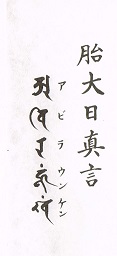 胎大日真言
アビラウンケン
𑖀𑖪𑖰𑖨𑖮𑖳𑖽𑖏𑖽